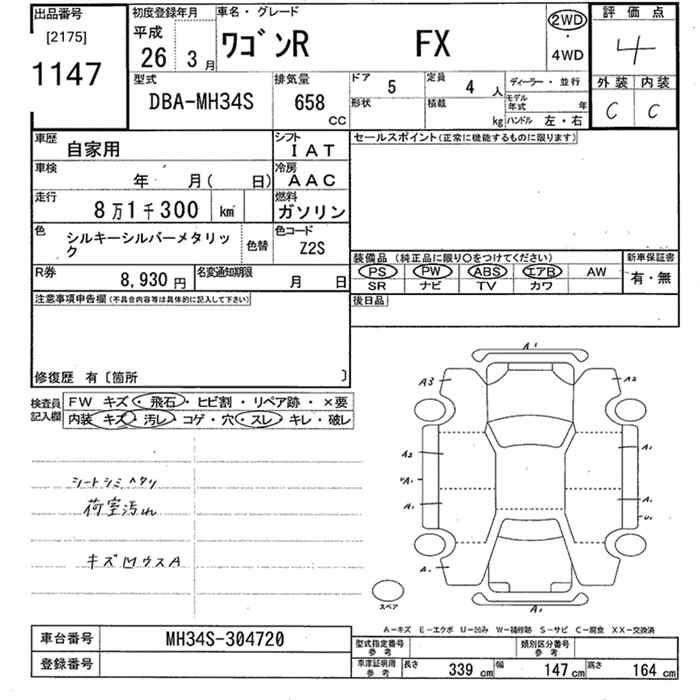 出品番号
[2175]
1147
初度登録年月
平成
26 3月
車名・グレード
ワゴンR FX
2WD
・
4WD
評価点
4
外装 内装
C C
型式
DBA-MH34S
排気量
658
CC
ドア
5
定員
4 人
形状
積載
kg
ディーラー・並行
モデル年式 年
ハンドル 左・右
車歴
自家用
シフト
IAT
車検
年 月( 日)
冷房
AAC
走行
8万1千300 km
燃料
ガソリン
色
シルキーシルバーメタリック
色替
色コード
Z2S
R券
8,930円
名変通知期限
月 日
セールスポイント(正常に機能するものに限ります)
装備品 (純正品に限り○をつけてください)
PS PW ABS エアB AW
SR ナビ TV カワ
新車保証書
有・無
後日品
注意事項申告欄(不具合内容等は具体的に記入して下さい)
修復歴 有〔箇所 〕
検査員記入欄
FW キズ・飛石・ヒビ割・リペア跡・×要
内装 キズ・汚レ・コゲ・穴・スレ・キレ・破レ
シートシミヘタリ
荷室汚れ
キズ凹ウスA
A1
A3
A2
A2
A1
A1
A1
A1
U1
A1
A1
スペア
A-キズ E-エクボ U-凹み W-補修跡 S-サビ C-腐食 XX-交換済
車台番号
MH34S-304720
登録番号
型式指定番号
参考
類別区分番号
参考
車庫証明用
参考
長さ 339 cm 幅 147 cm 高さ 164 cm